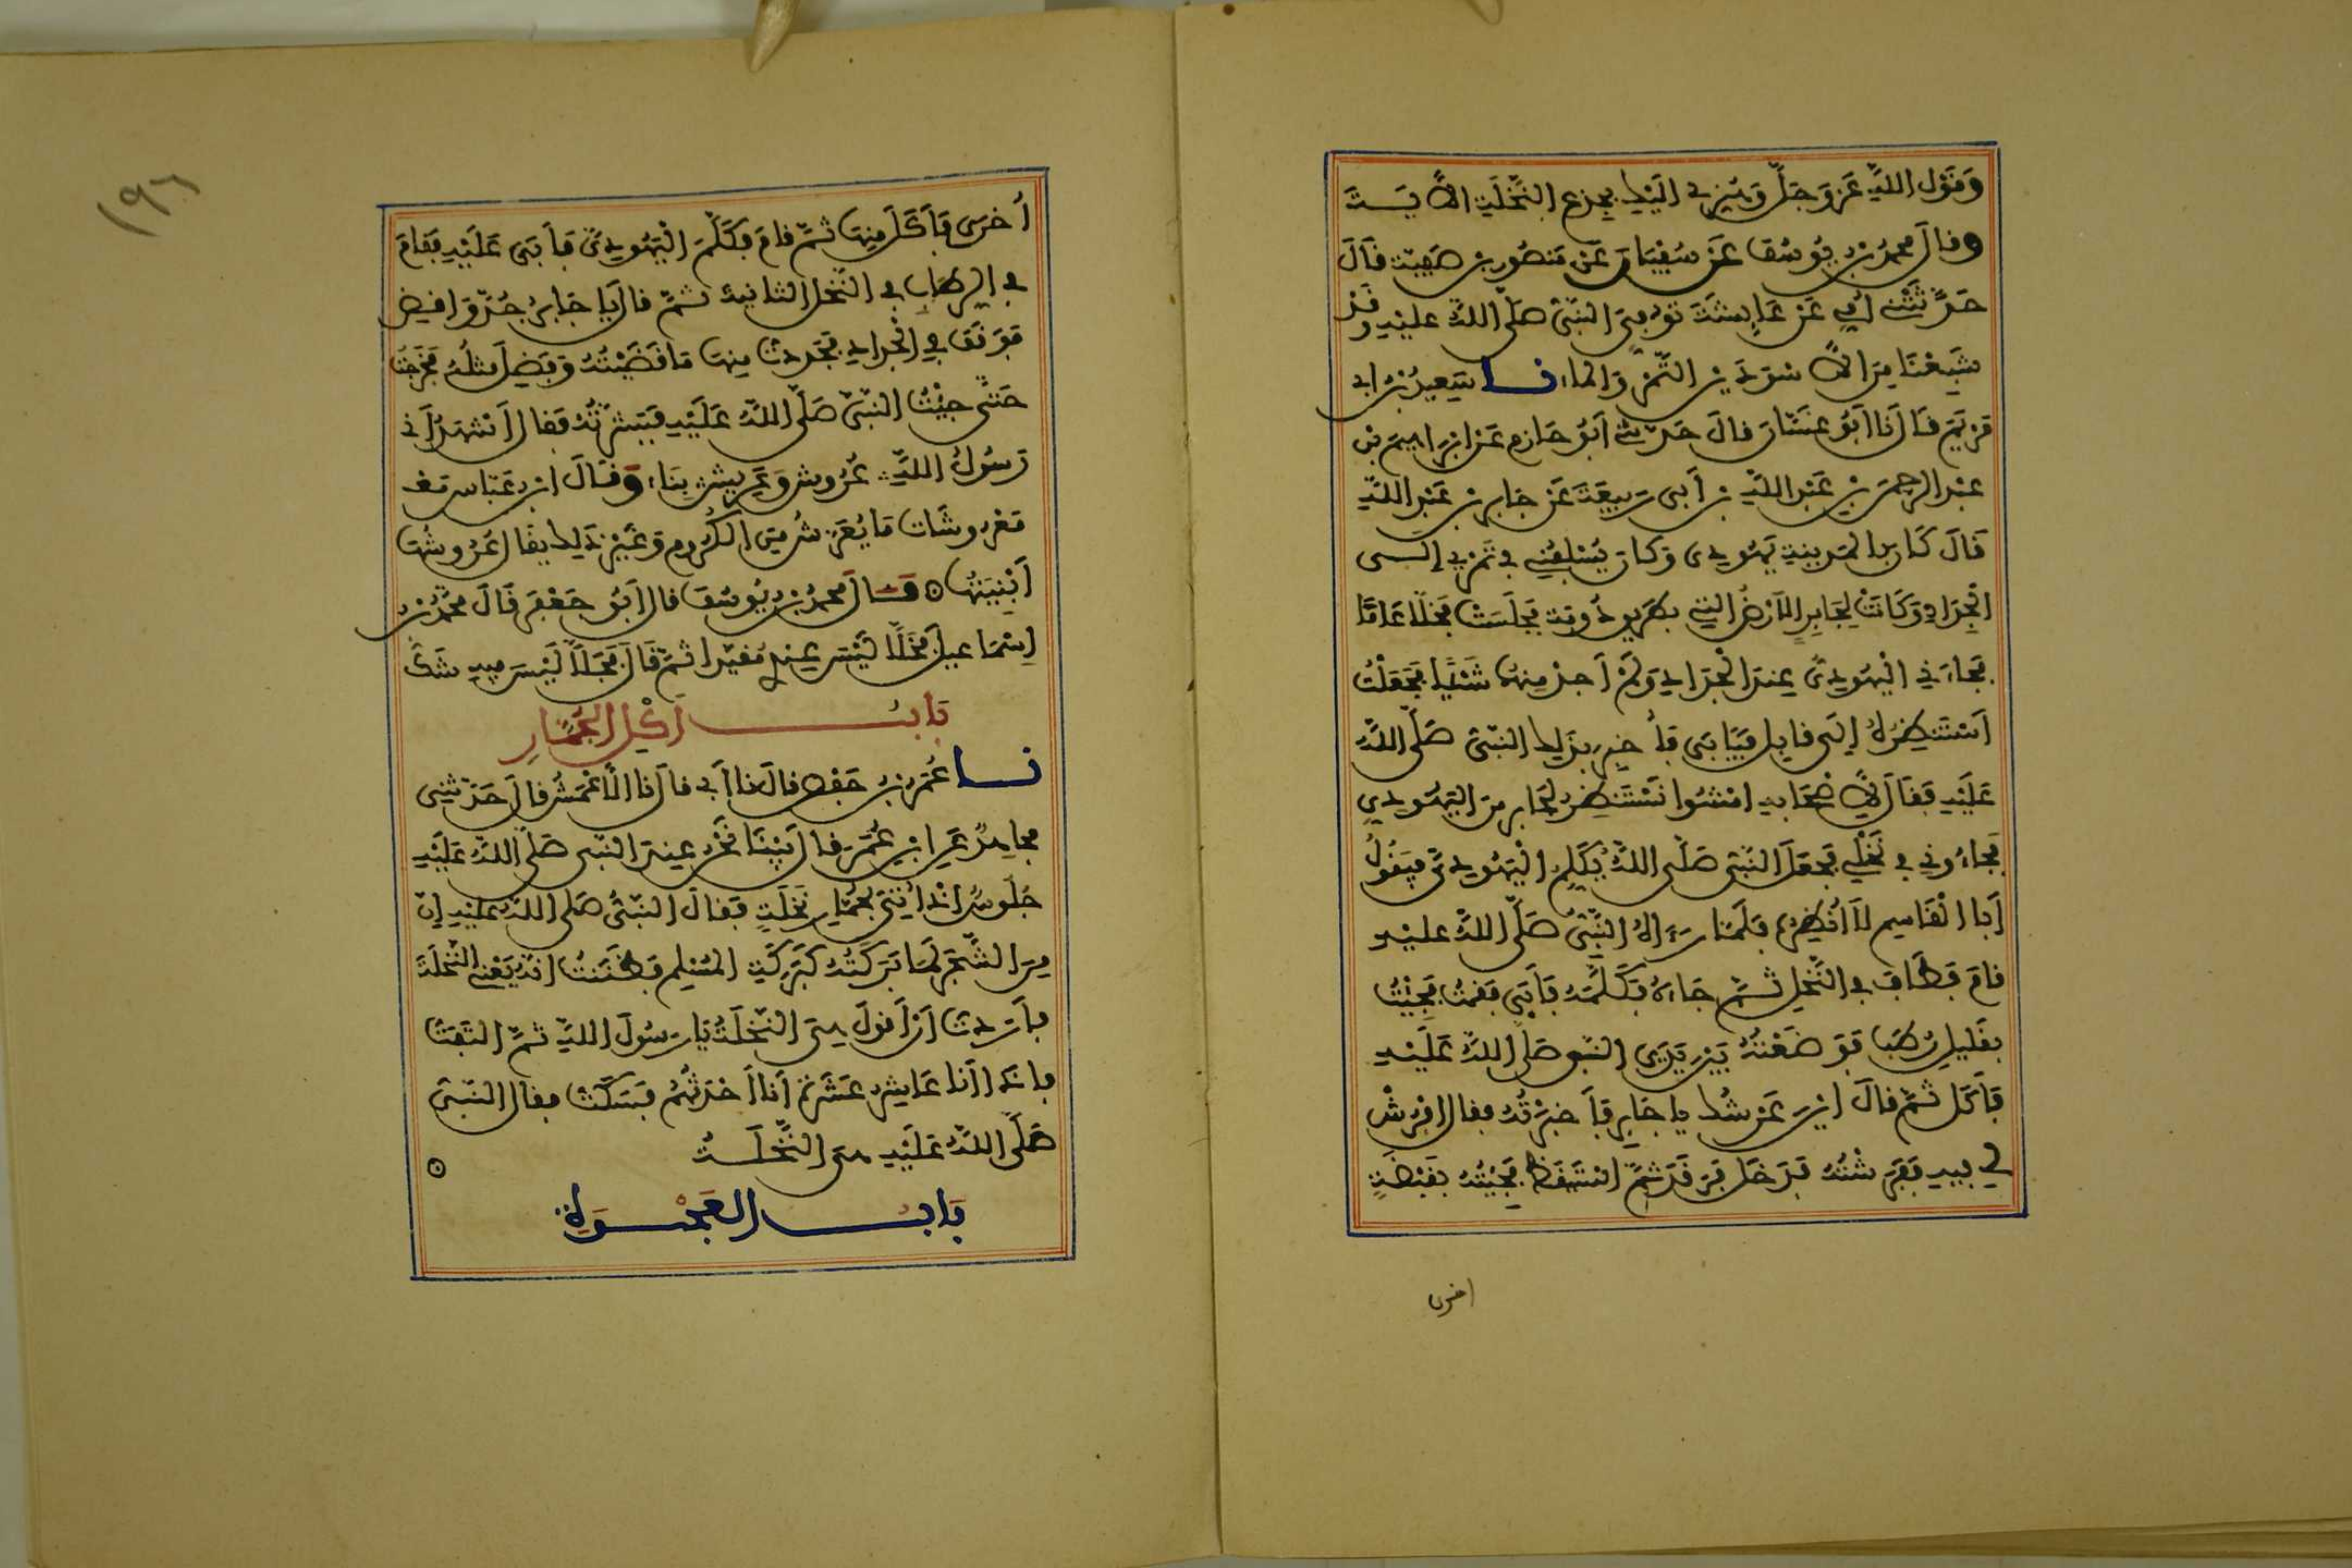 وَقَوْلِ اللَّهِ عَزَّ وَجَلَّ وَهُزِّي إِلَيْكِ بِجِذْعِ النَّخْلَةِ الآيَـــةَ
وقال محمد بن يوسف عَنْ سُفْيَان عَنْ مَنصُورِ بن صَفِيَّة قَالَ
حَدَّثَتْنِي أُمِّي عَنْ عَائِشَةَ تُوُفِّيَ النَّبِيُّ صَلَّى اللَّهُ عَلَيْهِ وقَدْ
شَبِعْنَا مِنَ الاسْوَدَيْنِ التَّمْرِ وَالماء نـــا سَعِيدُ بْنُ ابي
مَرْيَمَ قَالَ نَا أَبُو غَسَّانَ قالَ حَدَّثني أَبُو حَازِمٍ عَنْ ابْرَاهِيمَ بْنِ
عبْدِ الرحمن بْنِ عَبْدِ اللَّهِ بن أَبِي رَبِيعَةَ عَنْ جَابِرِ بن عَبْدِ اللَّهِ
قَالَ كَانَ بِالمَدِينَةِ يَهُودِيٌّ وَكَانَ يُسْلِفُنِي فِي تَمْرِي إِلَـــى
الْجِدَادِ وَكَانَتْ لِجَابِرٍ الأَرْضُ التِي بِطَرِيقِ رُومَةَ فجَلَسَتْ فَخَلَا عَامًا
فَجَاءَنِي الْيَهُودِيُّ عِندَ الْجَدَادِ وَلَمْ أَجُدَّ مِنهَا شَيْئًا فَجَعَلْتُ
أَسْتَنظِرُهُ إِلَى قَابِلٍ فَيَأْبَى فَأُخْبِرَ بِذَلِكَ النَّبِيُّ صَلَّى اللَّهُ
عَلَيْهِ فَقَالَ لِأَصْحَابِهِ امْشُوا نَسْتَنظِرْ لِجَابِرٍ مِنَ الْيَهُودِيِّ
فَجَاءُونِي فِي نَخْلِي فَجَعَلَ النَّبِيُّ صَلَّى اللَّهُ يُكَلِّمُ الْيَهُودِيَّ فيَقُولُ
أَبَا الْقَاسِمِ لَا أُنْظِرُهُ فَلَمَّا رَءَاهُ النَّبِيُّ صَلَّى اللَّهُ عَلَيْهِ
قامَ فَطَافَ فِي النَّخْلِ ثُمَّ جَاءَهُ فَكَلَّمَهُ فَأَبَى فَقُمْتُ فَجِئْتُ
بِقَلِيلِ رُطَبٍ فَوَضَعْتُهُ بَيْنَ يَدَيِ النَّبِيِّ صَلَّى اللَّهُ عَلَيْهِ
فَأَكَلَ ثُمَّ قَالَ ايْنَ عَرْشُكَ يا جَابِر فَأَخْبَرْتُهُ فقال افْرُشْ
لِي فِيهِ فَفَرَشْتُهُ فَدَخَلَ فَرَقَدَ ثُمَّ اسْتَيْقَظَ فَجِئْتُهُ بِقَبْضَةٍ
اخرى
١٩٦
أُخْرَى فَأَكَلَ مِنهَا ثُمَّ قامَ فَكَلَّمَ الْيَهُودِيَّ فَأَبَى عَلَيْهِ فَقَامَ
فِي الرِّطَابِ فِي النَّخْلِ الثَّانِيَةَ ثُمَّ قَالَ يَا جَابِرُ جُدَّ وَاقْضِ
فَوَقَفَ فِي الْجَدَادِ فَجَدَدتُ مِنهَا مَا قَضَيْتُهُ وَفَضَلَ مثلُهُ فَخَرَجْتُ
حَتَّى جِئْتُ النَّبِيَّ صَلَّى اللَّهُ عَلَيْهِ فَبَشَّرْتُهُ فَقَالَ أَشْهَدُ أَنِّي
رَسُولُ اللَّهِ عُرُوشٌ وَعَرِيشٌ بِنَاءٌ وَقَالَ ابن عَبَّاسٍ مَعْـ
مَعْرُوشَات مَا يُعَرَّشُ مِنَ الكُرُومِ وَغَيْرِ ذَلِكَ يقَالُ عُرُوشُهَا
أَبْنِيَتُهَا ⊙ قَـــالَ محمد بن يُوسُفَ قال أَبُو جَعْفَرٍ قَالَ محَمَّدُ بْنُ
إِسْمَاعِيلَ فَخَلَا لَيْسَ عِنْدِي مُقَيَّدا ثُمَّ قَالَ فَجَلَّا لَيْسَ فِيهِ شَكٌّ
بَابُ أَكْلِ الْجُمَّارِ
نـــا عُمَرُ بْنُ حَفْصٍ قال نا أَبي قال نا الْأَعْمَشُ قالَ حَدَّثَنِي
مجاهِدٌ عَن ابْنِ عُمَرَ قال بَيْنَا نَحْنُ عِندَ النَّبِيِّ صَلَّى اللَّهُ عَلَيْهِ
جُلُوسٌ إِذْ أُتِيَ بِجُمَّارِ نَخْلَةٍ فقالَ النَّبِيُّ صَلَّى اللَّهُ عَلَيْهِ إِنَّ
مِنَ الشَّجَرِ لَمَا بَرَكَتُهُ كَبَرَكَةِ المُسْلِمِ فَظَنَنْتُ انَّهُ يَعْنِي النَّخْلَةَ
فأَرَدتُ أَنْ أَقُولَ هِيَ النَّخْلَةُ يَا رَسُولَ اللَّهِ ثُمَّ الْتَفَتُّ
فإذَا أَنَا عَاشِرُ عَشَرَةٍ أَنَا أَحْدَثُهُمْ فَسَكَتُّ فقال النَّبِيُّ
صَلَّى اللَّهُ عَلَيْهِ هِيَ النَّخْلَـــةُ ⊙
بَابُ الْعَجْـــوَةِ